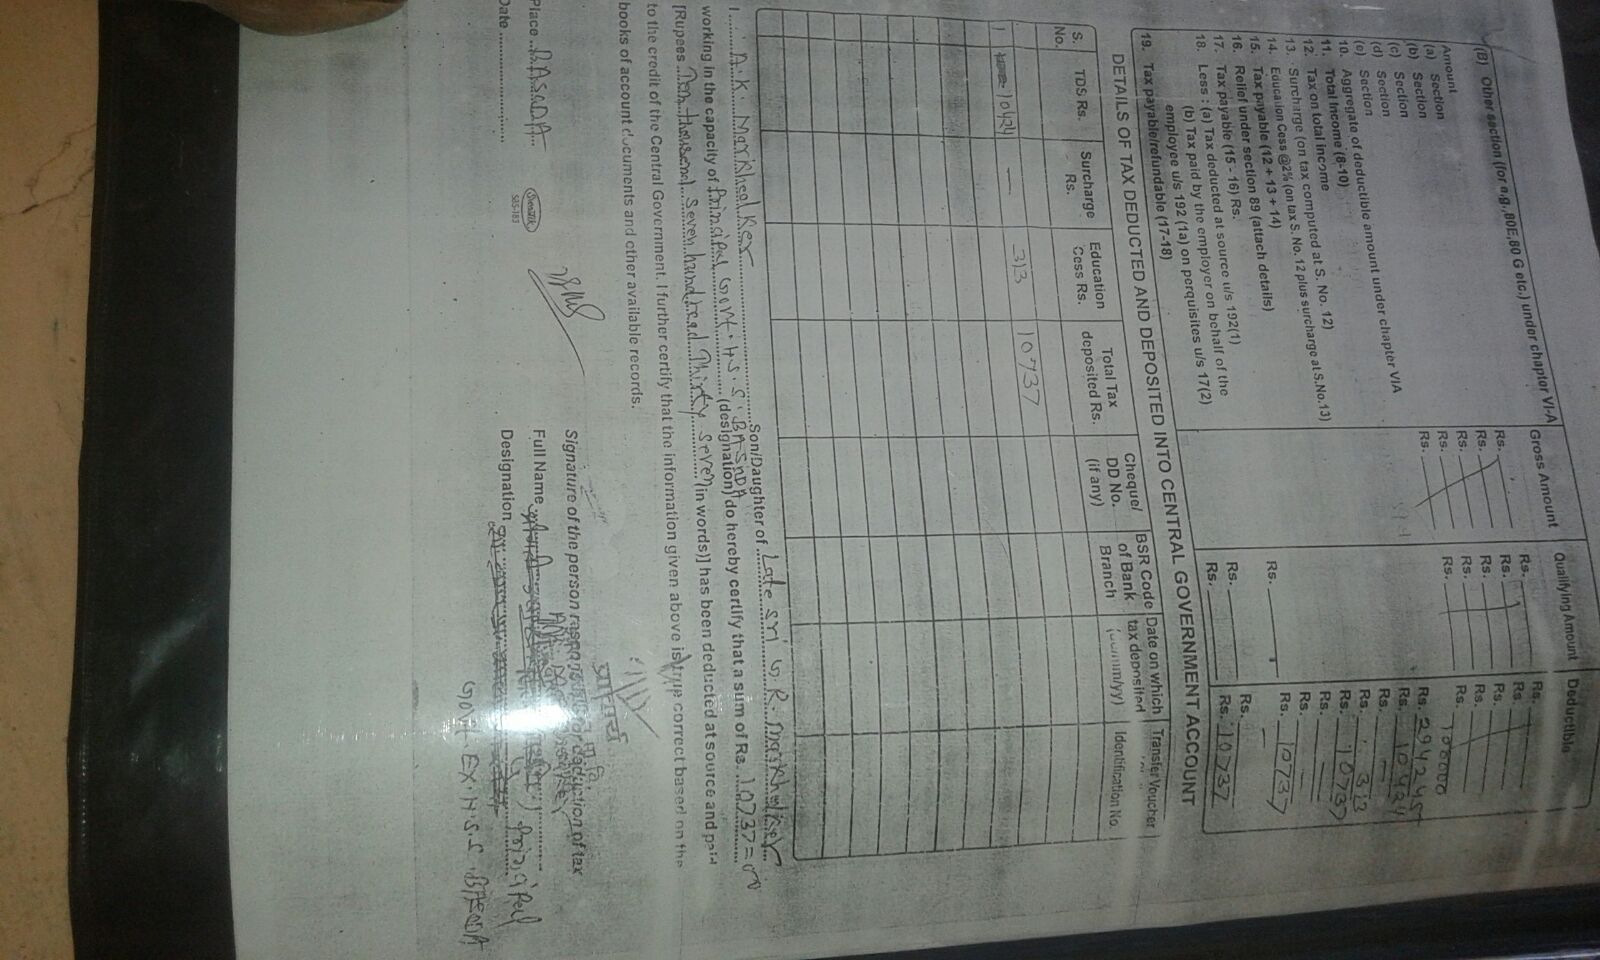 (B) Other section (for e.g.,80E,80 G etc.) under chapter VI-A
Gross Amount Qualifying Amount Deductible
Amount
(a) Section Rs. Rs. Rs.
(b) Section Rs. Rs. Rs.
(c) Section Rs. Rs. Rs.
(d) Section Rs. Rs. Rs.
(e) Section Rs. Rs. Rs.
10. Aggregate of deductible amount under chapter VIA 100000
11. Total Income (8-10) Rs. 294245
12. Tax on total income Rs. 10424
13. Surcharge (on tax computed at S. No. 12) Rs. —
14. Education Cess @2% (on tax S. No. 12 plus surcharge at S.No.13) Rs. 313
15. Tax payable (12 + 13 + 14) Rs. 10737
16. Relief under section 89 (attach details) Rs. —
17. Tax payable (15 - 16) Rs. Rs. —
18. Less : (a) Tax deducted at source u/s 192(1) Rs. Rs. 10737
(b) Tax paid by the employer on behalf of the
employee u/s 192 (1a) on perquisites u/s 17(2) Rs. Rs.
19. Tax payable/refundable (17-18) Rs. Rs. 10737
DETAILS OF TAX DEDUCTED AND DEPOSITED INTO CENTRAL GOVERNMENT ACCOUNT
S. No. TDS Rs. Surcharge Rs. Education Cess Rs. Total Tax deposited Rs. Cheque/ DD No. (if any) BSR Code of Bank Branch Date on which tax deposited (dd/mm/yy) Transfer Voucher Identification No.
1 10424 — 313 10737
I A.K. Markhedker Son/Daughter of Late Sri G.R. Markhedker
working in the capacity of Principal Govt. H.S.S. BASODA (designation) do hereby certify that a sum of Rs. 10737=00
[Rupees Ten thousand Seven hundread Thirty Seven in words)] has been deducted at source and paid
to the credit of the Central Government. I further certify that the information given above is true correct based on the
books of account documents and other available records.
प्राचार्य
Signature of the person responsible for deduction of tax
Place BASODA
Swastik
SBS-183
Full Name
Date
Designation Principal
Govt. EX. H.S.S. BASODA